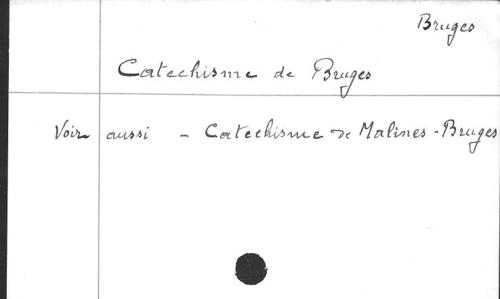 Bruges
Catechisme de Bruges
Voir aussi - Catechisme de Malines - Bruges